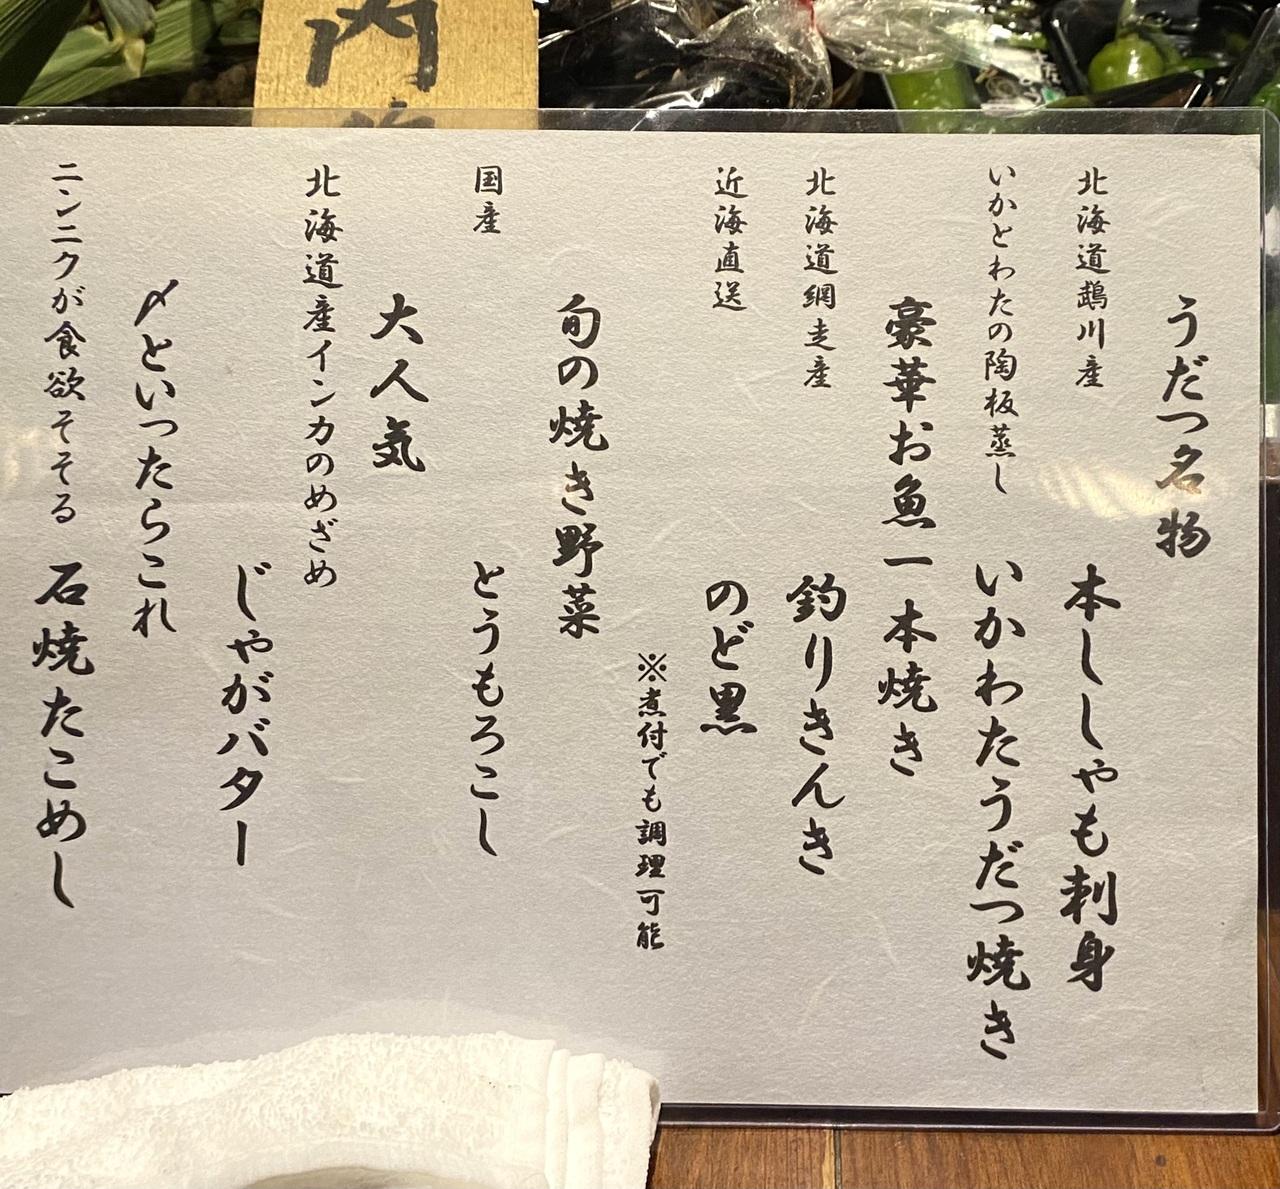 うだつ名物
北海道鵡川産 本ししゃも刺身
いかとわたの陶板蒸し いかわたうだつ焼き
豪華お魚一本焼き
北海道網走産 釣りきんき
近海直送 のど黒
※煮付でも調理可能
旬の焼き野菜
国産 とうもろこし
大人気
北海道産インカのめざめ
じゃがバター
〆といったらこれ
ニンニクが食欲そそる 石焼たこめし
内